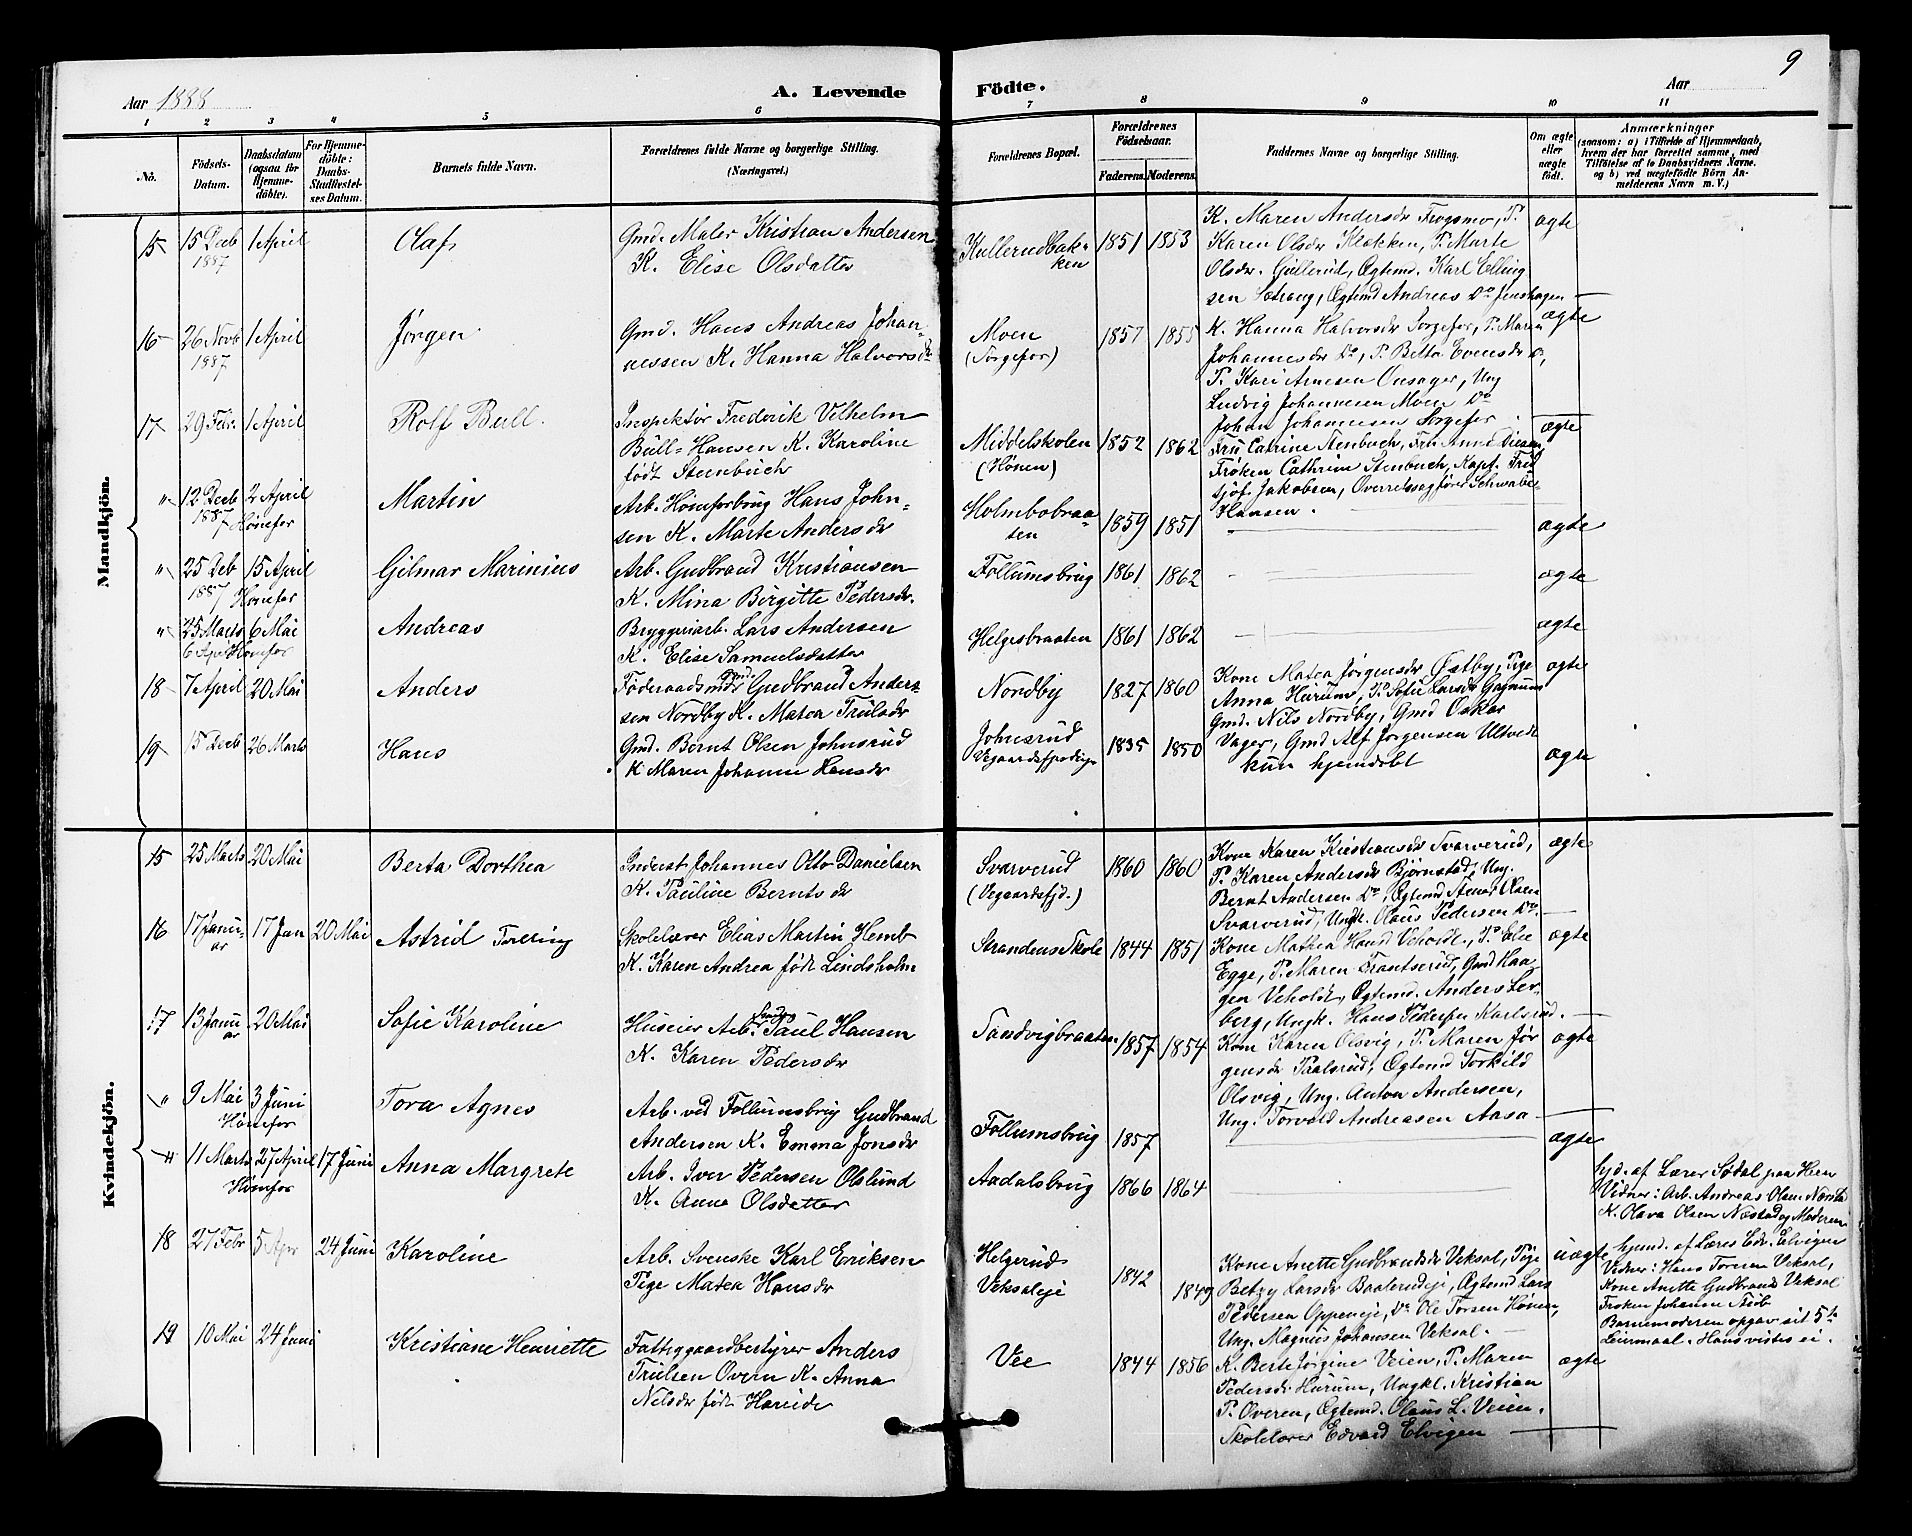 9
Aar 1888
A. Levende
Födte.
Aar
1 2 3 4 5 6 7 8 9 10 11
No.
Födsels-
Datum.
Daabsdatum
(ogsaa for
Hjemme-
döbte).
For Hjemme-
döbte:
Daabs-
Stadfæstel-
ses Datum.
Barnets fulde Navn.
Forældrenes fulde Navne og borgerlige Stilling.
(Næringsvei.)
Forældrenes Bopæl.
Forældrenes
Födselsaar.
Faderens. Moderens.
Faddernes Navne og borgerlige Stilling.
Om ægte
eller
uægte
födt.
Anmærkninger
(saasom: a) i Tilfælde af Hjemmedaab,
hvem der har forrettet samme, med
Tilföielse af to Daabsvidners Navne.
og b) ved uægtefödte Börn An-
melderens Navn m. V.)
Mandkjön.
15 15 Decb 1 April
1887
Olaf
Gmd. Maler Kristian Andersen
K. Elise Olsdatter
Kullerudbak-
ken
1851 1853
K. Maren Andersdr Frogsmo, P.
Karen Olsdr Klækken, P. Marte
Olsdr. Gullerud, Ægtemd. Karl Elling
sen Sætrang, Ægtemd Andreas Do Jenshagen
ægte
16 26 Novb 1 April
1887
Jörgen
Gmd. Hans Andreas Johan-
nessen K. Hanna Halvorsdr
Moen
(Sørgefos)
1857 1855
K. Hanna Halvorsdr Sørgefos, P. Maren
Johannesdr Do, P. Betta Evensdr Do,
P. Kari Arnesen Onsager, Ung
Ludvig Johannesen Moen Do
Johan Johannesen Sørgefos
ægte
17 29 Febr. 1 April
Rolf Bull.
Inspektör Frederik Vilhelm
Büll-Hansen K. Karoline
født Stenbuch
Middelskolen
(Hønen)
1852 1862
Fru Catrine Stenbuch, Fru Anna
Frøken Cathrine Stenbuch, Kapt. Frit
sjof. Jakobsen, Overretssagfører Schwabe-
Hansen.
ægte
" 12 Decb 2 April
1887 Hønefos
Martin
Arb. Hønefosbrug Hans John-
sen K. Marte Andersdr
Holmbobraa-
ten
1859 1851
ægte
" 25 Deb 15 April
1887 Hønefos
Gilmar Marinius
Arb. Gudbrand Kristiansen
K. Mina Birgitte Pedersdr.
Follumsbrug 1861 1862
ægte
" 25 Marts 6 Mai
Hønefos
Andreas
Bryggeriarb. Lars Andersen
K. Elise Samuelsdatter
Helgesbraaten 1861 1862
ægte
18 7 April 20 Mai
Anders
Føderaadsmd Gudbrand Ander-
sen Nordby K. Matea Trulsdr
Nordby 1827 1860
Kone Matea Jørgensdr Østby, Pige
Anna Hurum, P. Sofie Larsdr Gagnum
Gmd. Nils Nordby, Gmd Oskar
Vager, Gmd Alf Jørgensen Ultvedt
ægte
19 15 Decb 26 Marts
Hans
Gmd. Bernt Olsen Johnsrud
K Maren Johanne Hansdr
Johnsrud
1835 1850
kun hjemdøbt
ægte
Kvindekjön.
15 25 Marts 20 Mai
Berta Dorthea
Inderst Johannes Otto Danielsen
K. Pauline Berntsdr
Svarverud
(Vegaardsfjd.)
1860 1860
Kone Karen Kristiansdr Svarverud,
P. Karen Andersdr Bjørnstad, Ung.
Bernt Andersen Do, Ægtemd Olsen
Svarverud, Ungk. Olaus Pedersen Do.
ægte
16 17 Janu- 17 Jan 20 Mai
ar
Astrid
Skolelærer Elias Martin Hemb
K. Karen Andrea født Lindsholm
Strandens Skole 1844 1851
Kone Mathea Veholdt, P. Elie
Egge, P. Maren Trantserud, Gmd Haa-
gen Veholdt, Ægtemd. Anders Ler-
berg, Ungk. Hans Pedersen Karlsrud.
ægte
17 13 Janu 20 Mai
ar
Sofie Karoline
Huseier Arb. Paul Hansen
K. Karen Pedersdr
Sandvigbraaten 1857 1854
Kone Karen Olsvig, P. Maren Jör
gensdr Paalsrud, Ægtemd Torkild
Olsvig, Ung. Anton Andersen,
Ung. Torvald Andreasen Aasa
ægte
" 9 Mai 3 Juni
Hønefos
Tora Agnes
Arb. ved Follumsbrug Gudbrand
Andersen K. Emma Jonsdr
Follumsbrug 1857
ægte
" 11 Marts 27 April 17 Juni
Hønefos
Anna Margrete
Arb. Iver Pedersen Olslund
K. Anna Olsdatter
Aadalsbrug 1866 1864
hjd. af Lærer Sødal paa Hem
Vidner: Arb. Andreas Olsen
K. Olava Olsen Næstad og Moderen
18 27 Febr 5 Apr 24 Juni
Karoline
Arb. Svenske Karl Eriksen
Pige Matea Hansdr
Helgerud
Veksaleje
1842 1849
Kone Anette Gudbrandsdr Veksal, Pige
Betzy Larsdr Baaterudeje, Ægtemd Lars
Pedersen Oppeneje, Do Ole Torsen Hønen,
Ung. Magnus Johansen Veksal.
uægte
hjemd. af Lærer Edv. Elvigen
Vidner: Hans Toresen Veksal,
Kone Anette Gudbrands Veksal
Frøken Johanne
Barnemoderen opgav sit 5te
Leiermaal. Hans vistes ei.
19 10 Mai 24 Juni
Kristiane Henriette
Fattiggaardbestyrer Anders
Trulsen Overn K. Anna
Nelsdr født Hareide
Vee 1844 1856
K. Berte Jørgine Veien, P. Maren
Pedersdr Hurum, Ungkl. Kristian
P. Overen, Ægtemd. Olaus L. Veien.
Skolelærer Edvard Elvigen
ægte